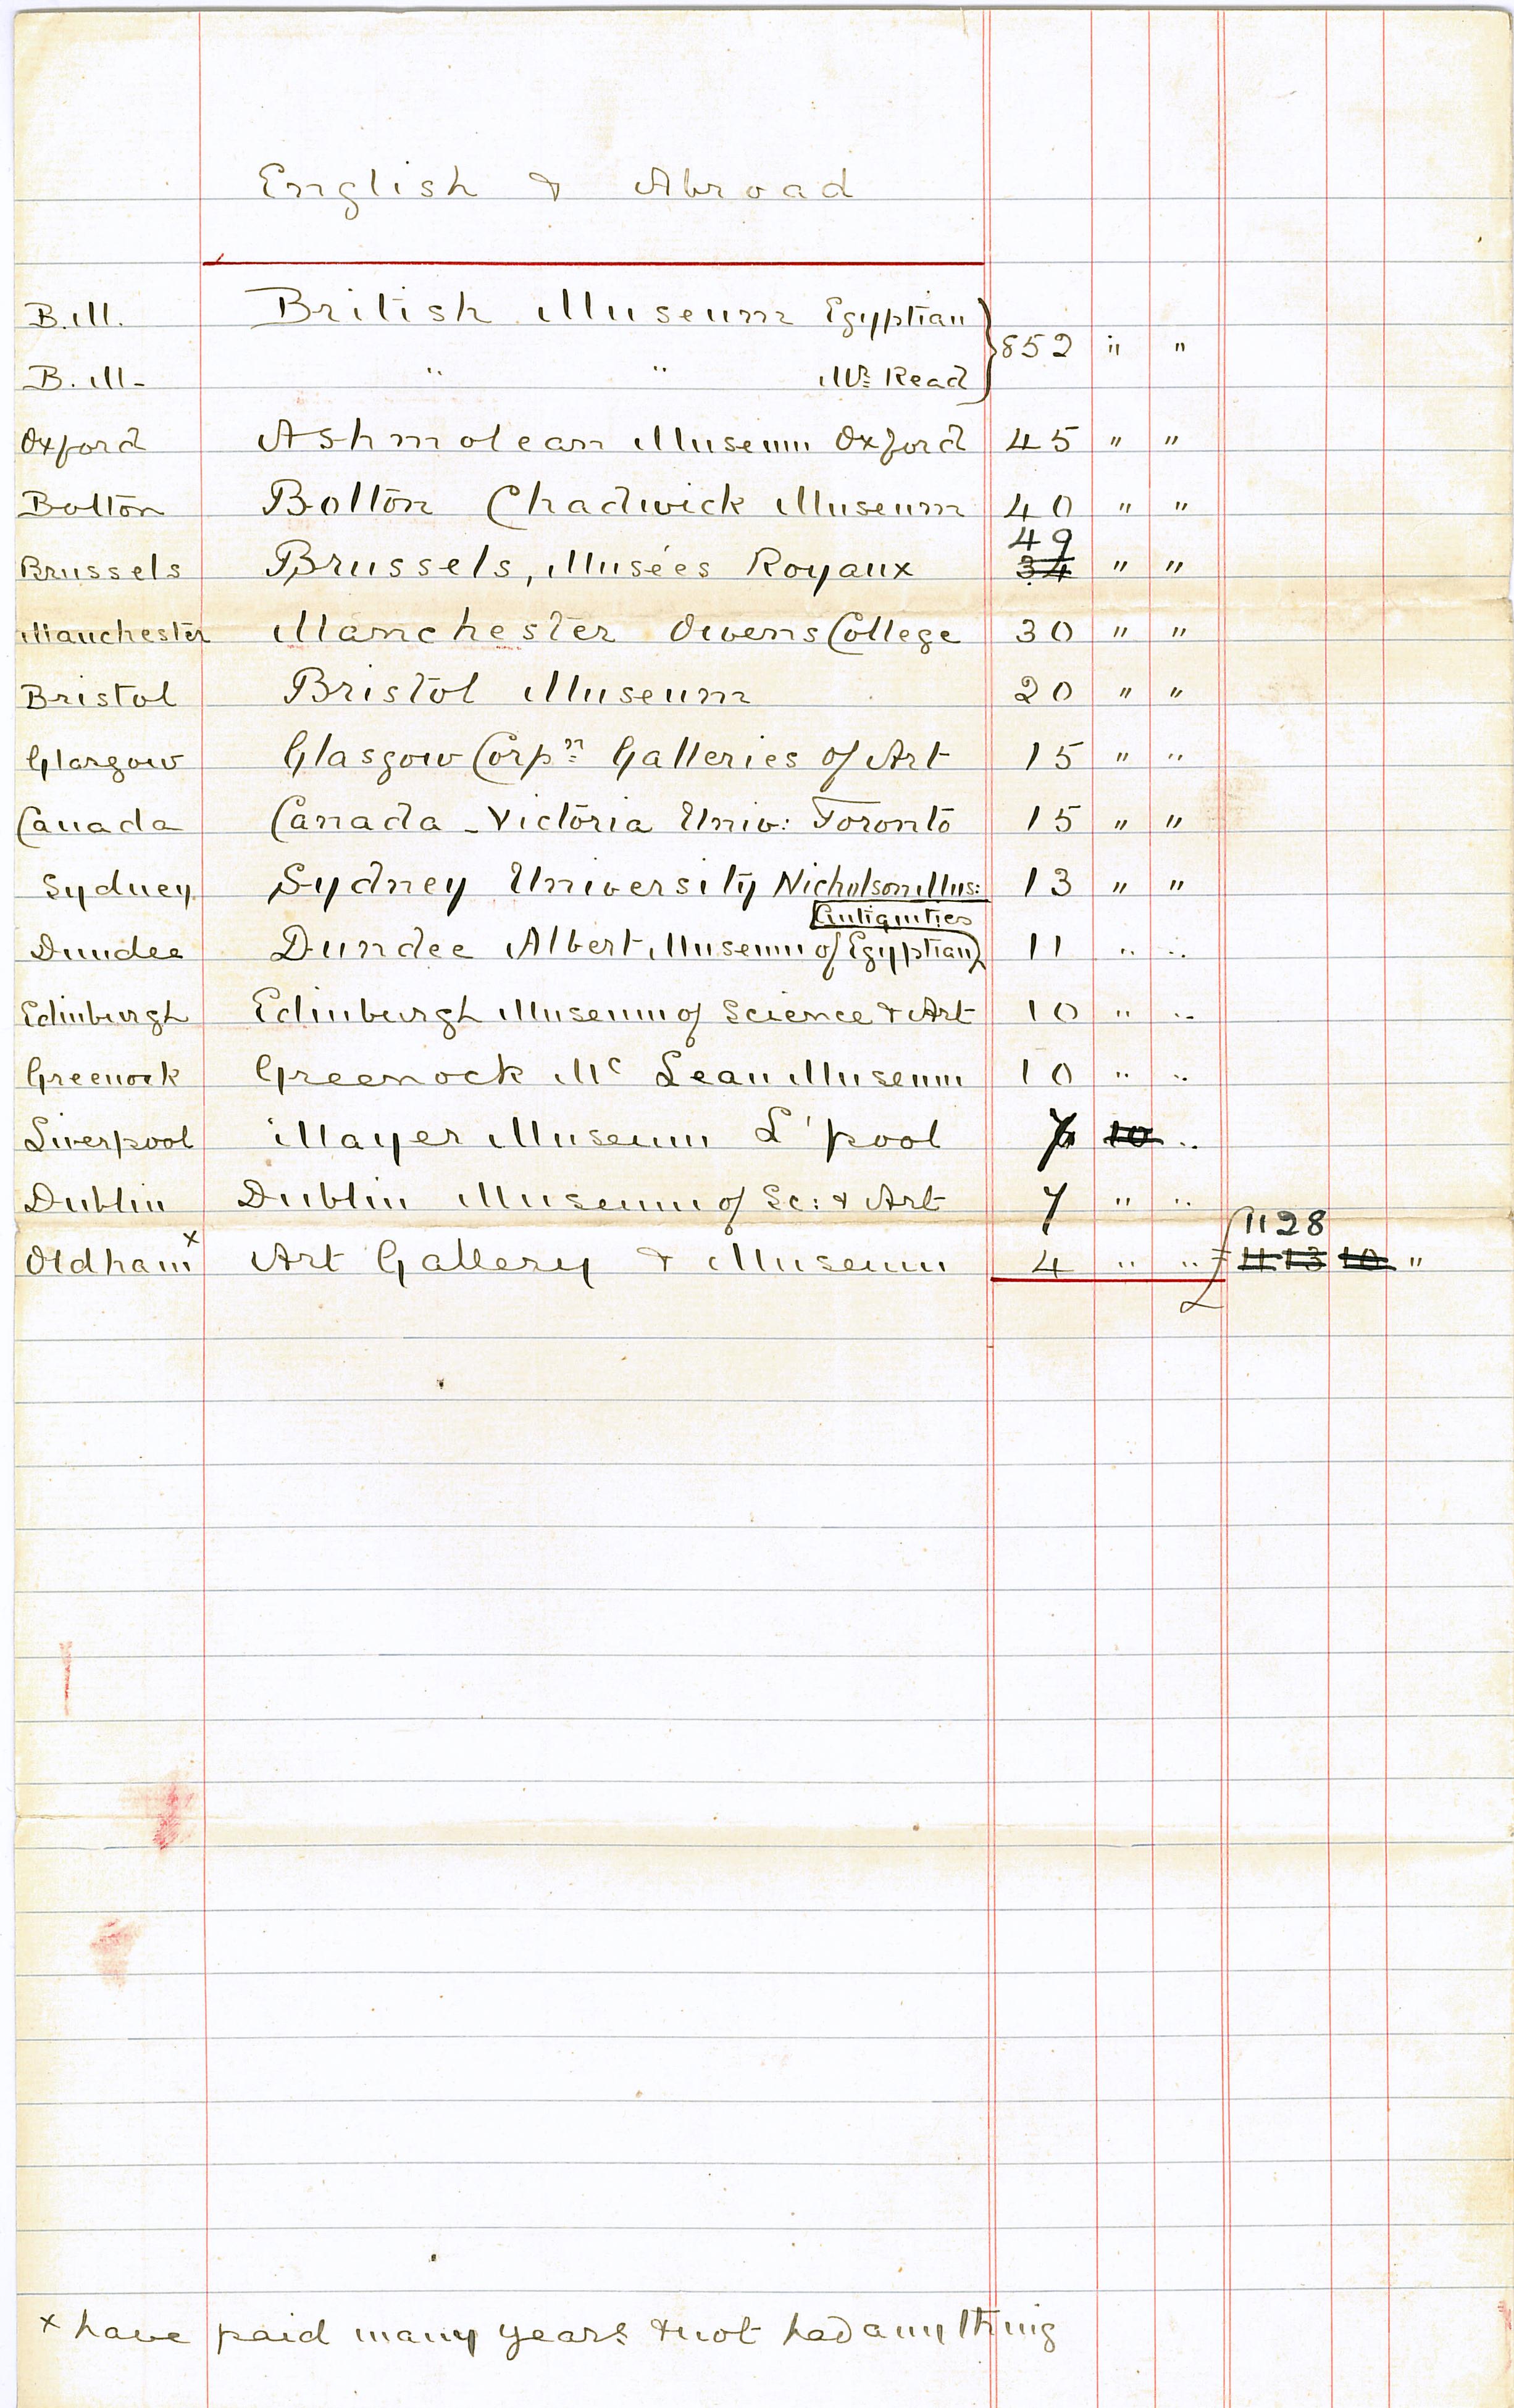 English & Abroad
B.M. British Museum Egyptian } 852 " "
B.M. " " Mr. Read
Oxford Ashmolean Museum Oxford 45 " "
Bolton Bolton Chadwick Museum 40 " "
49
Brussels Brussels, Musées Royaux 34 " "
Manchester Manchester Owens College 30 " "
Bristol Bristol Museum 20 " "
Glasgow Glasgow Corpn: Galleries of Art 15 " "
Canada Canada - Victoria Univ: Toronto 15 " "
Sydney Sydney University Nicholson Mus: 13 " "
Antiquities
Dundee Dundee Albert Museum of Egyptian 11 " "
Edinburgh Edinburgh Museum of Science & Art 10 " "
Greenock Greenock Mc Lean Museum 10 " "
Liverpool Mayer Museum L'pool 7 10 "
Dublin Dublin Museum of Sc: & Art 7 " "
1128
Oldham x Art Gallery & Museum 4 " " = 1113 10 "
£
x have paid many years & not had anything